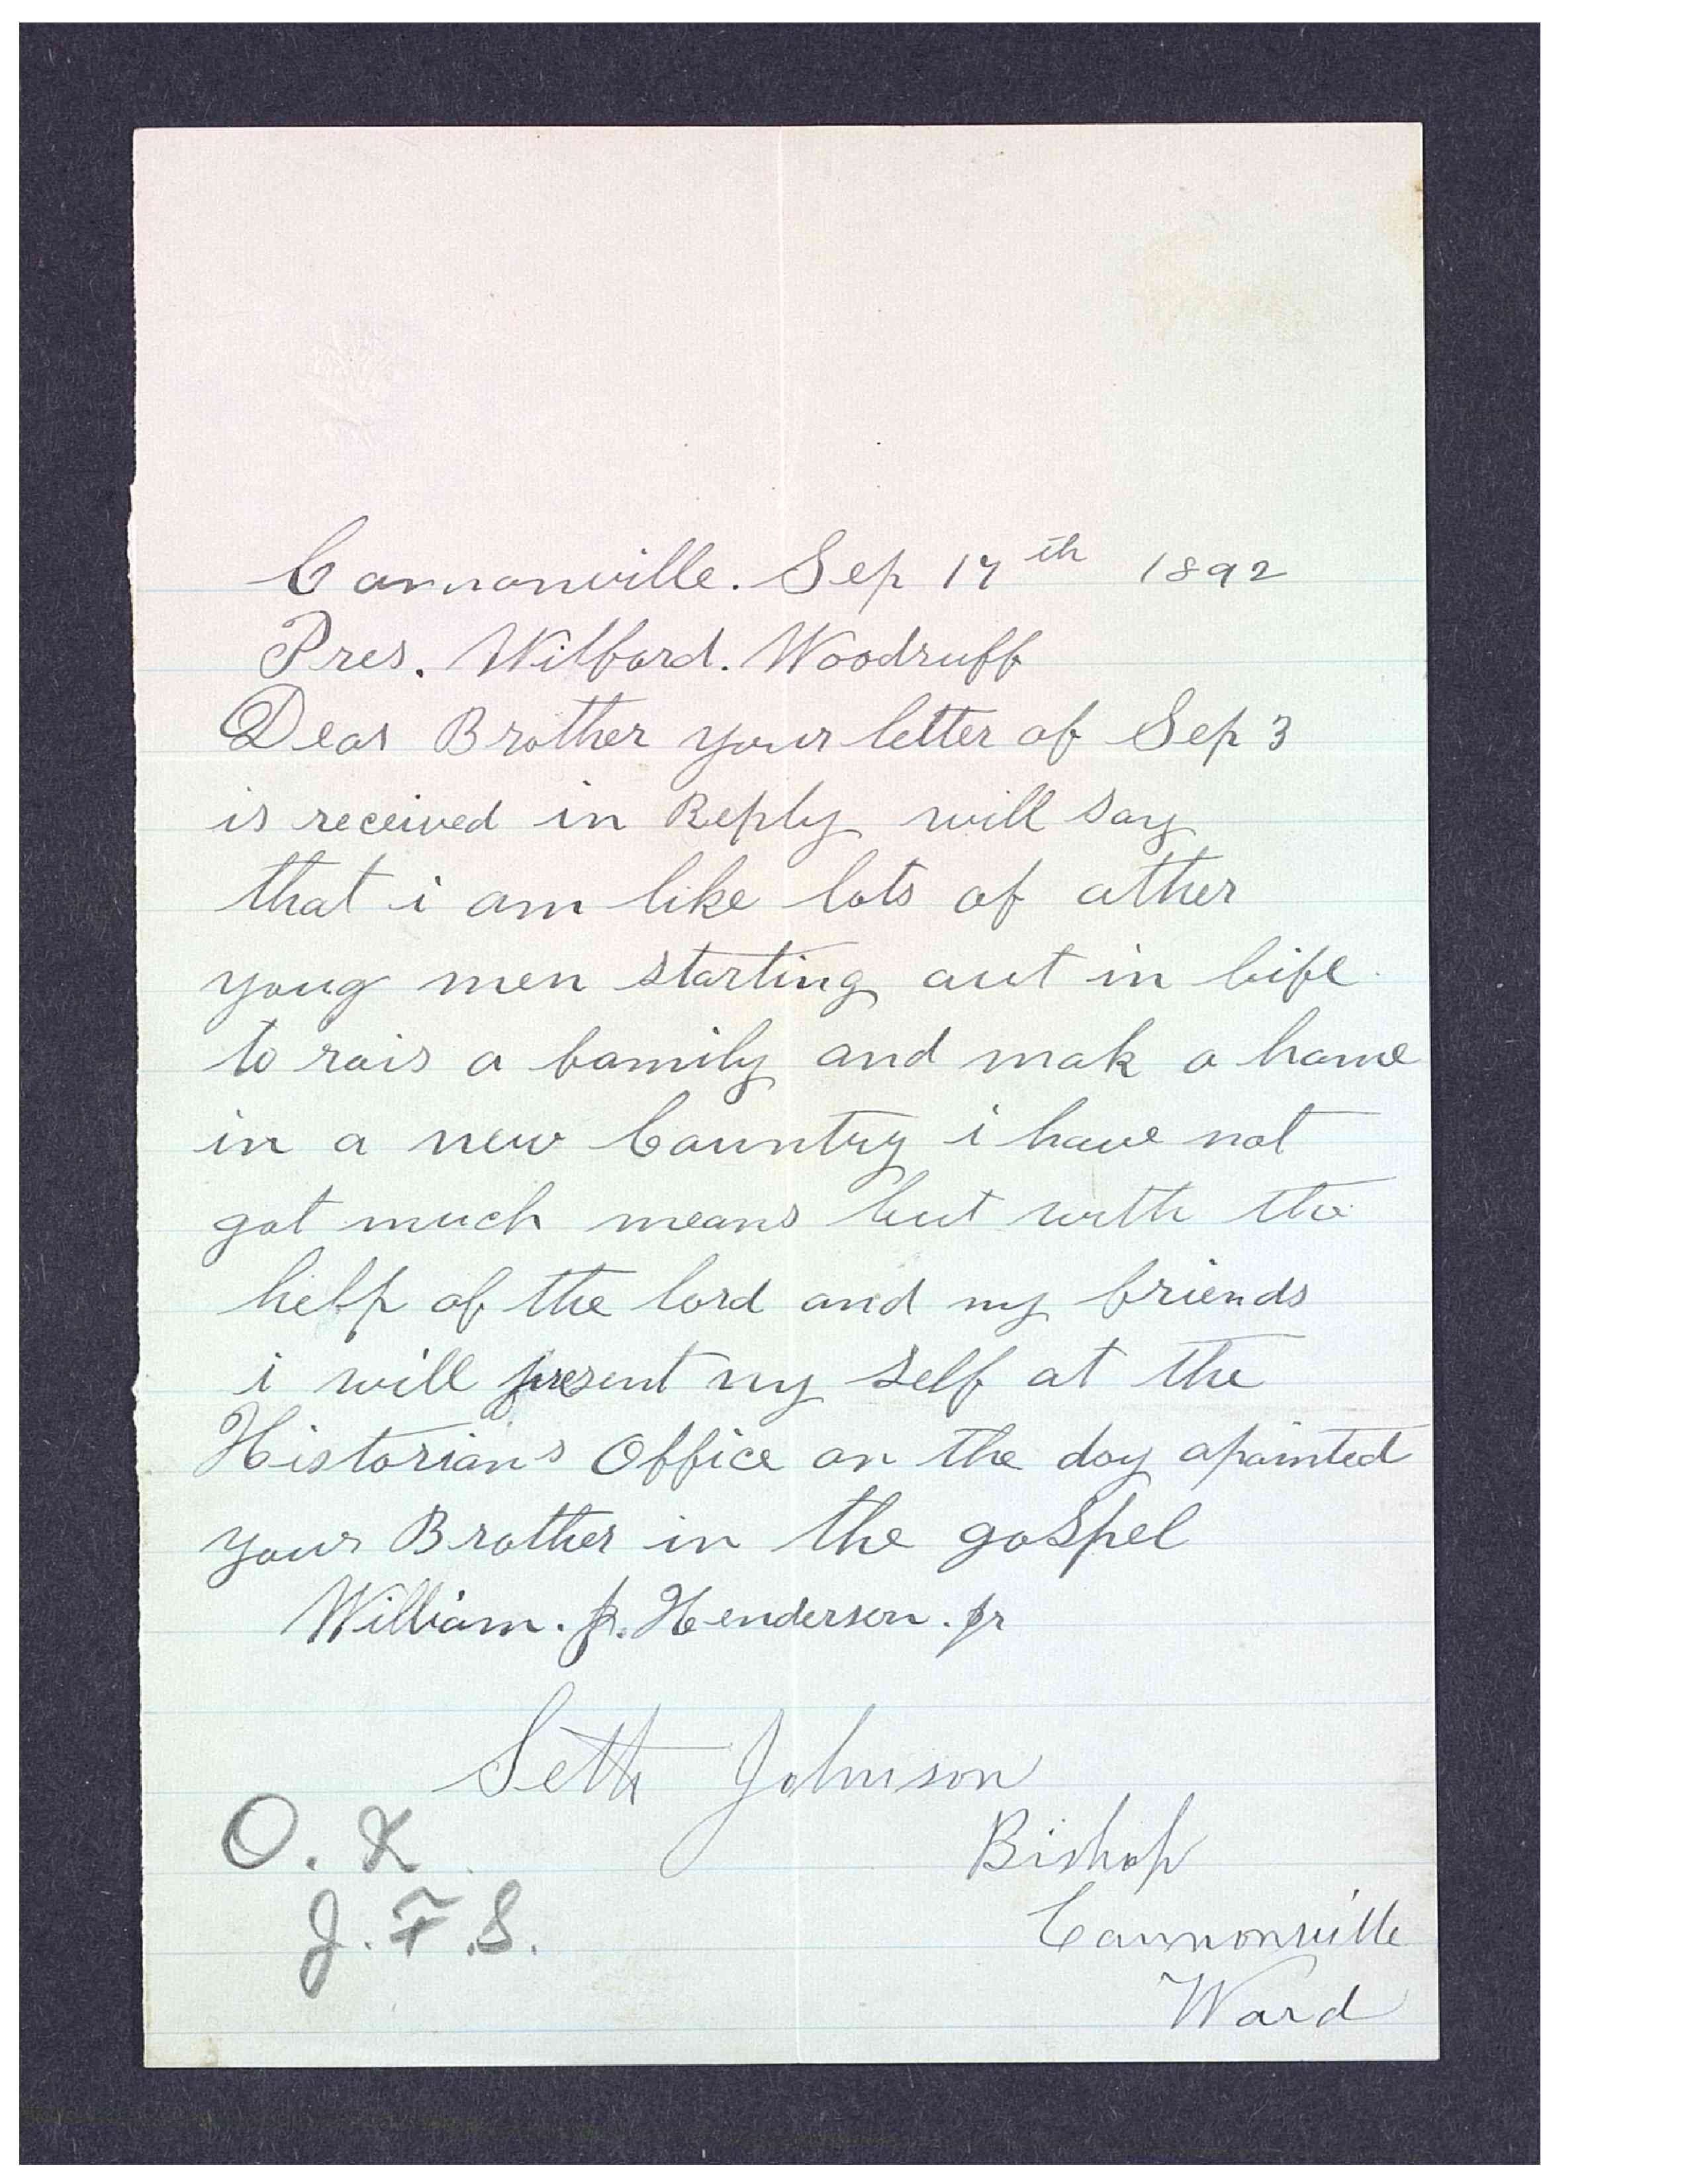 Cannonville. Sep 17th 1892
Pres. Wilford. Woodruff
Dear Brother your letter of Sep 3
is received in Reply will say
that i am like lots of other
youg men starting out in life
to rais a family and mak a home
in a new Country i have not
got much means but with the
help of the lord and my friends
i will present my self at the
Historian's Office on the day apointed
your Brother in the goSpel
William. J. Henderson. jr
Seth Johnson
Bishop
Cannonville
Ward
O. K.
J. F. S.